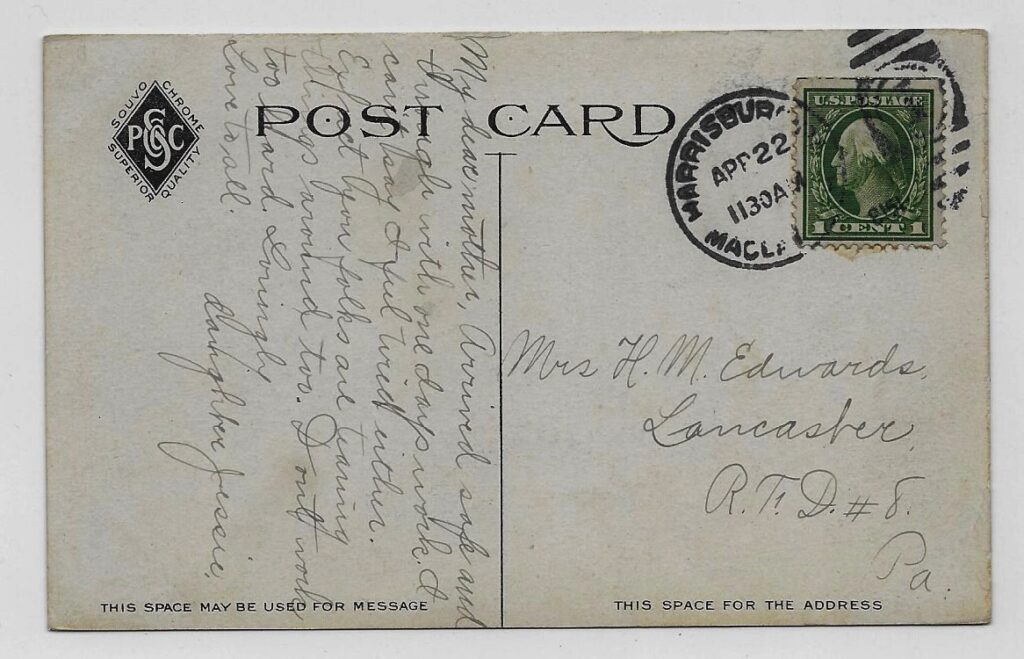 POST CARD
SOUVO CHROME
SUPERIOR QUALITY
HARRISBURG
APR 22
1130 AM
U.S. POSTAGE
1 CENT 1
My dear mother, Arrived safe and
through with one days work. I
can't say I feel tired either.
Expect you folks are tearing
things around too. Don't work
too hard. Lovingly
Love to all.
daughter Jessie.
Mrs H. M. Edwards,
Lancaster,
R.F.D. # 8.
Pa.
THIS SPACE MAY BE USED FOR MESSAGE
THIS SPACE FOR THE ADDRESS